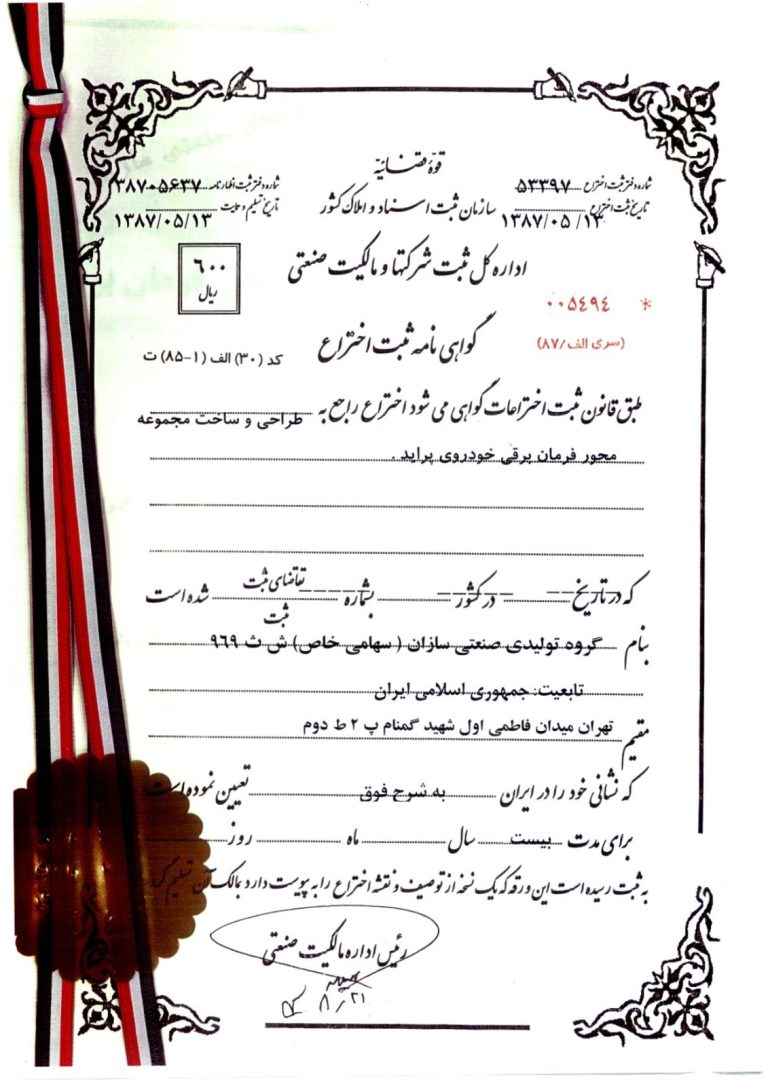 قوهٔ قضائیّه
شماره دفتر ثبت اختراع ۵۳۳۹۷
سازمان ثبت اسناد و املاک کشور
تاریخ ثبت اختراع ۱۳۸۷/۰۵/۱۳
شماره دفتر ثبت اظهارنامه ۳۸۷۰۵۶۳۷
تاریخ تسلیم و حمایت ۱۳۸۷/۰۵/۱۳
اداره کل ثبت شرکتها و مالکیت صنعتی
۶۰۰
ریال
* ۰۰۵۴۹۴
(سری الف/۸۷)
گواهی نامه ثبت اختراع
کد (۳۰) الف (۱-۸۵) ت
طبق قانون ثبت اختراعات گواهی می شود اختراع راجع به طراحی و ساخت مجموعه
محور فرمان برقی خودروی پراید .
که در تاریخ در کشور بشماره تقاضای ثبت شده است
ثبت
بنام گروه تولیدی صنعتی سازان ( سهامی خاص) ش ث ۹۶۹
تابعیت: جمهوری اسلامی ایران
مقیم تهران میدان فاطمی اول شهید گمنام پ ۲ ط دوم
که نشانی خود را در ایران به شرح فوق تعیین نموده است
برای مدت بیست سال ماه روز
به ثبت رسیده است این ورقه که یک نسخه از توصیف و نقشه اختراع را به پیوست دارد بمالک آن تسلیم گر
رئیس اداره مالکیت صنعتی
۸/۲۱